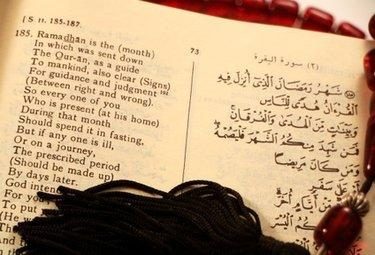 [ S II. 185-187.
73
185. Ramadhān is the (month)
In which was sent down
The Qur-ān, as a guide
To mankind, also clear (Signs)
For guidance and judgment
(Between right and wrong).
So every one of you
Who is present (at his home)
During that month
Should spend it in fasting,
But if any one is ill,
Or on a journey,
The prescribed period
(Should be made up)
By days later.
God
For
To
(He
The
(٢) سورة البقرة
شَهْرُ رَمَضَانَ الَّذِي أُنْزِلَ فِيهِ
الْقُرْآنُ هُدًى لِلنَّاسِ
وَبَيِّنَاتٍ مِنَ الْهُدَى وَالْفُرْقَانِ
فَمَنْ شَهِدَ مِنْكُمُ الشَّهْرَ فَلْيَصُمْهُ
وَمَنْ كَانَ مَرِيضًا
أَوْ عَلَى سَفَرٍ
مِنْ أَيَّامٍ أُخَرَ
بِكُمُ الْيُسْرَ